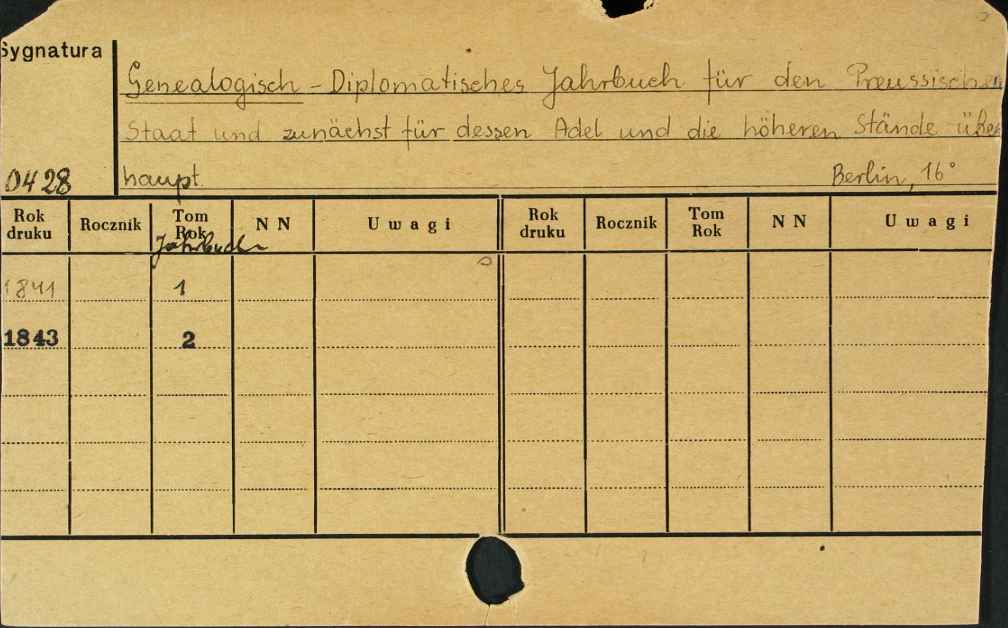 Sygnatura
Genealogisch - Diplomatisches Jahrbuch für den Preussischen
Staat und zunächst für dessen Adel und die höheren Stände über
0428 haupt. Berlin, 16°
Rok druku Rocznik Tom Rok N N Uwagi Rok druku Rocznik Tom Rok N N Uwagi
Jahrbuch
1841 1
1843 2